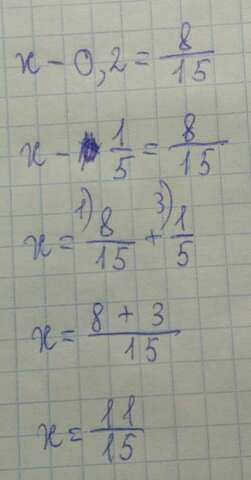 x - 0,2 = 8/15
x - 1/5 = 8/15
x = 1) 8/15 + 3) 1/5
x = 8 + 3/15
x = 11/15